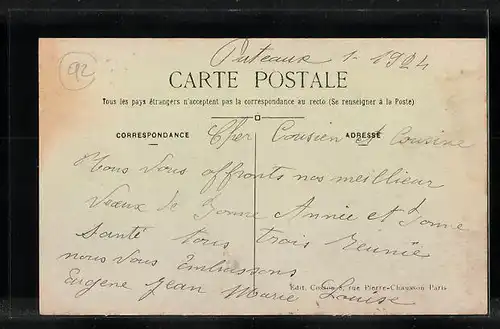 92
Puteaux 1- 1924
CARTE POSTALE
Tous les pays étrangers n'acceptent pas la correspondance au recto (Se renseigner à la Poste)
CORRESPONDANCE ADRESSE
Cher Cousien et Cousine
Nous vous offronts nos meillieur
Veaux de Bonne Année et Bonne
Santé tous trois Reunie
nous vous Embrassons
Eugène Jean Marie Louise
Edit. 8, rue Pierre-Chausson Paris